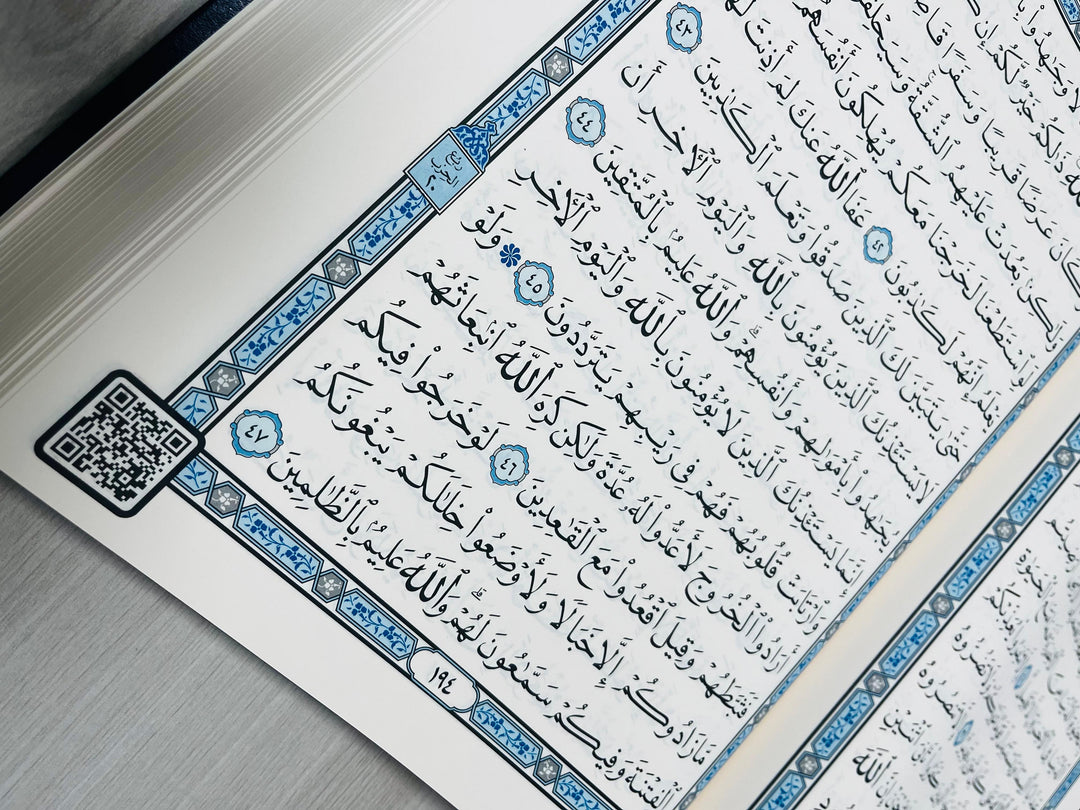 وَجَـٰهِدُوا۟
ٱللَّهِ ذَٰلِكُمْ خَيْرٌ لَّكُمْ إِن
كَانَ عَرَضًا قَرِيبًا وَسَفَرًا
وَلَـٰكِنۢ بَعُدَتْ عَلَيْهِمُ ٱلشُّقَّةُ وَسَيَحْلِفُونَ
لَوِ ٱسْتَطَعْنَا لَخَرَجْنَا مَعَكُمْ يُهْلِكُونَ أَنفُسَهُمْ
يَعْلَمُ إِنَّهُمْ لَكَـٰذِبُونَ ٤٢ عَفَا ٱللَّهُ عَنكَ لِمَ أَذِنتَ
حَتَّىٰ يَتَبَيَّنَ لَكَ ٱلَّذِينَ صَدَقُوا۟ وَتَعْلَمَ ٱلْكَـٰذِبِينَ ٤٣
لَا يَسْتَـْٔذِنُكَ ٱلَّذِينَ يُؤْمِنُونَ بِٱللَّهِ وَٱلْيَوْمِ ٱلْـَٔاخِرِ أَن
يُجَـٰهِدُوا۟ بِأَمْوَٰلِهِمْ وَأَنفُسِهِمْ ۗ وَٱللَّهُ عَلِيمٌۢ بِٱلْمُتَّقِينَ ٤٤
إِنَّمَا يَسْتَـْٔذِنُكَ ٱلَّذِينَ لَا يُؤْمِنُونَ بِٱللَّهِ وَٱلْيَوْمِ ٱلْـَٔاخِرِ
وَٱرْتَابَتْ قُلُوبُهُمْ فَهُمْ فِى رَيْبِهِمْ يَتَرَدَّدُونَ ٤٥ ۞ وَلَوْ
أَرَادُوا۟ ٱلْخُرُوجَ لَأَعَدُّوا۟ لَهُۥ عُدَّةً وَلَـٰكِن كَرِهَ ٱللَّهُ ٱنۢبِعَاثَهُمْ
فَثَبَّطَهُمْ وَقِيلَ ٱقْعُدُوا۟ مَعَ ٱلْقَـٰعِدِينَ ٤٦ لَوْ خَرَجُوا۟ فِيكُم
مَّا زَادُوكُمْ إِلَّا خَبَالًا وَلَأَوْضَعُوا۟ خِلَـٰلَكُمْ يَبْغُونَكُمُ
ٱلْفِتْنَةَ وَفِيكُمْ سَمَّـٰعُونَ لَهُمْ ۗ وَٱللَّهُ عَلِيمٌۢ بِٱلظَّـٰلِمِينَ ٤٧
١٩٤